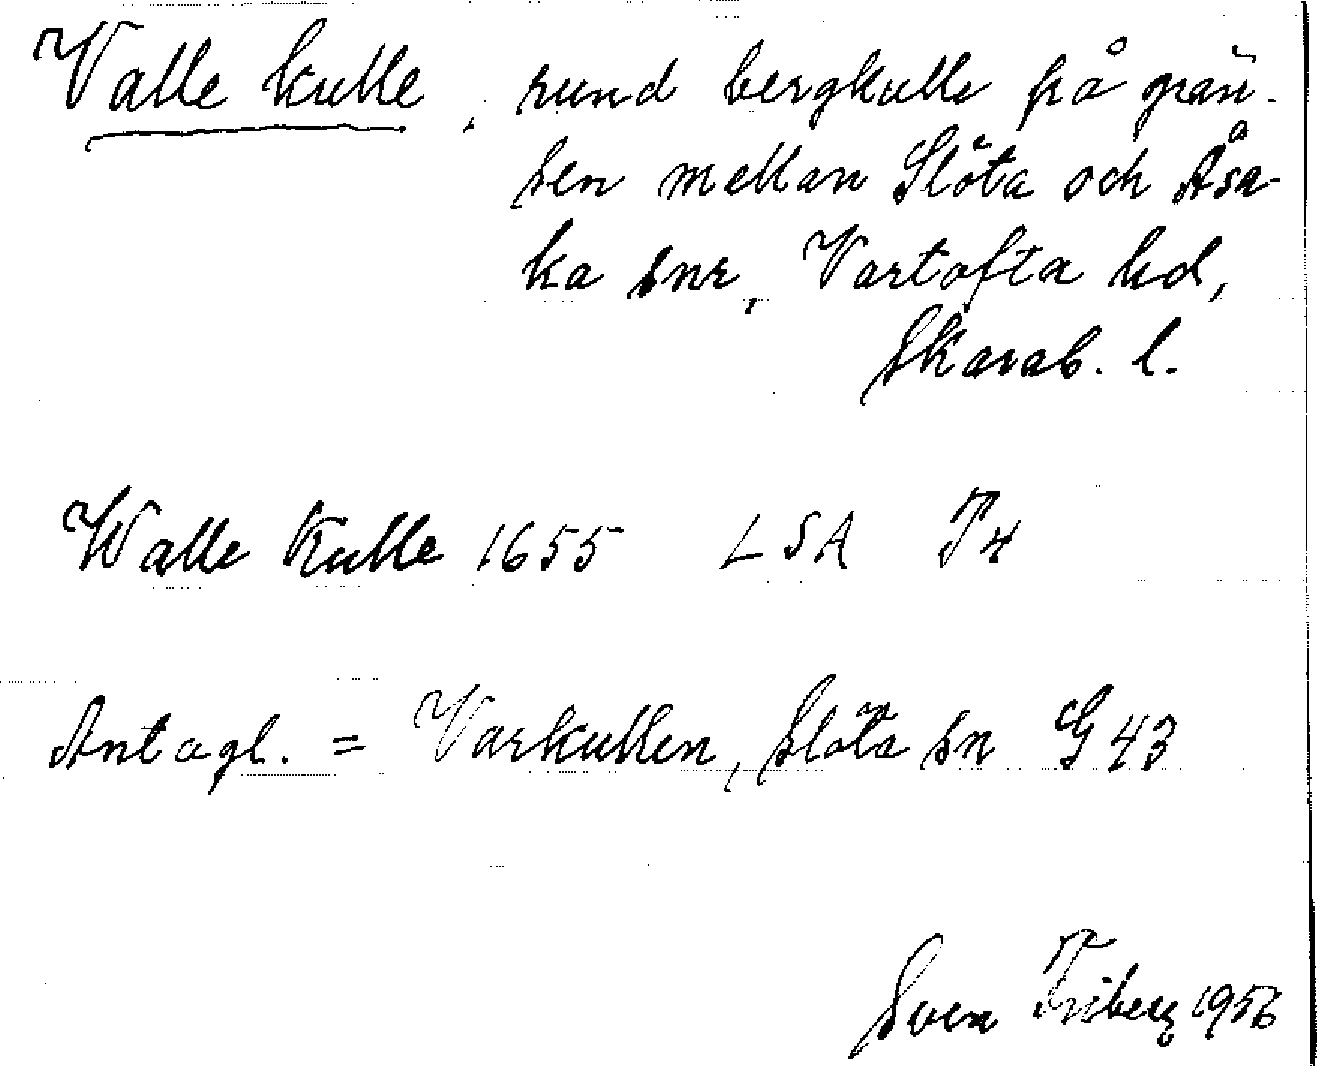 Valle kulle, rund bergkulle på grän-
sen mellan Slöta och Åsa-
ka snr, Vartofta hd,
Skarab. l.
Walle Kulle 1655 LSA T4
Antagl. = Varkullen, Slöta sn G 43
Sven Friberg 1956